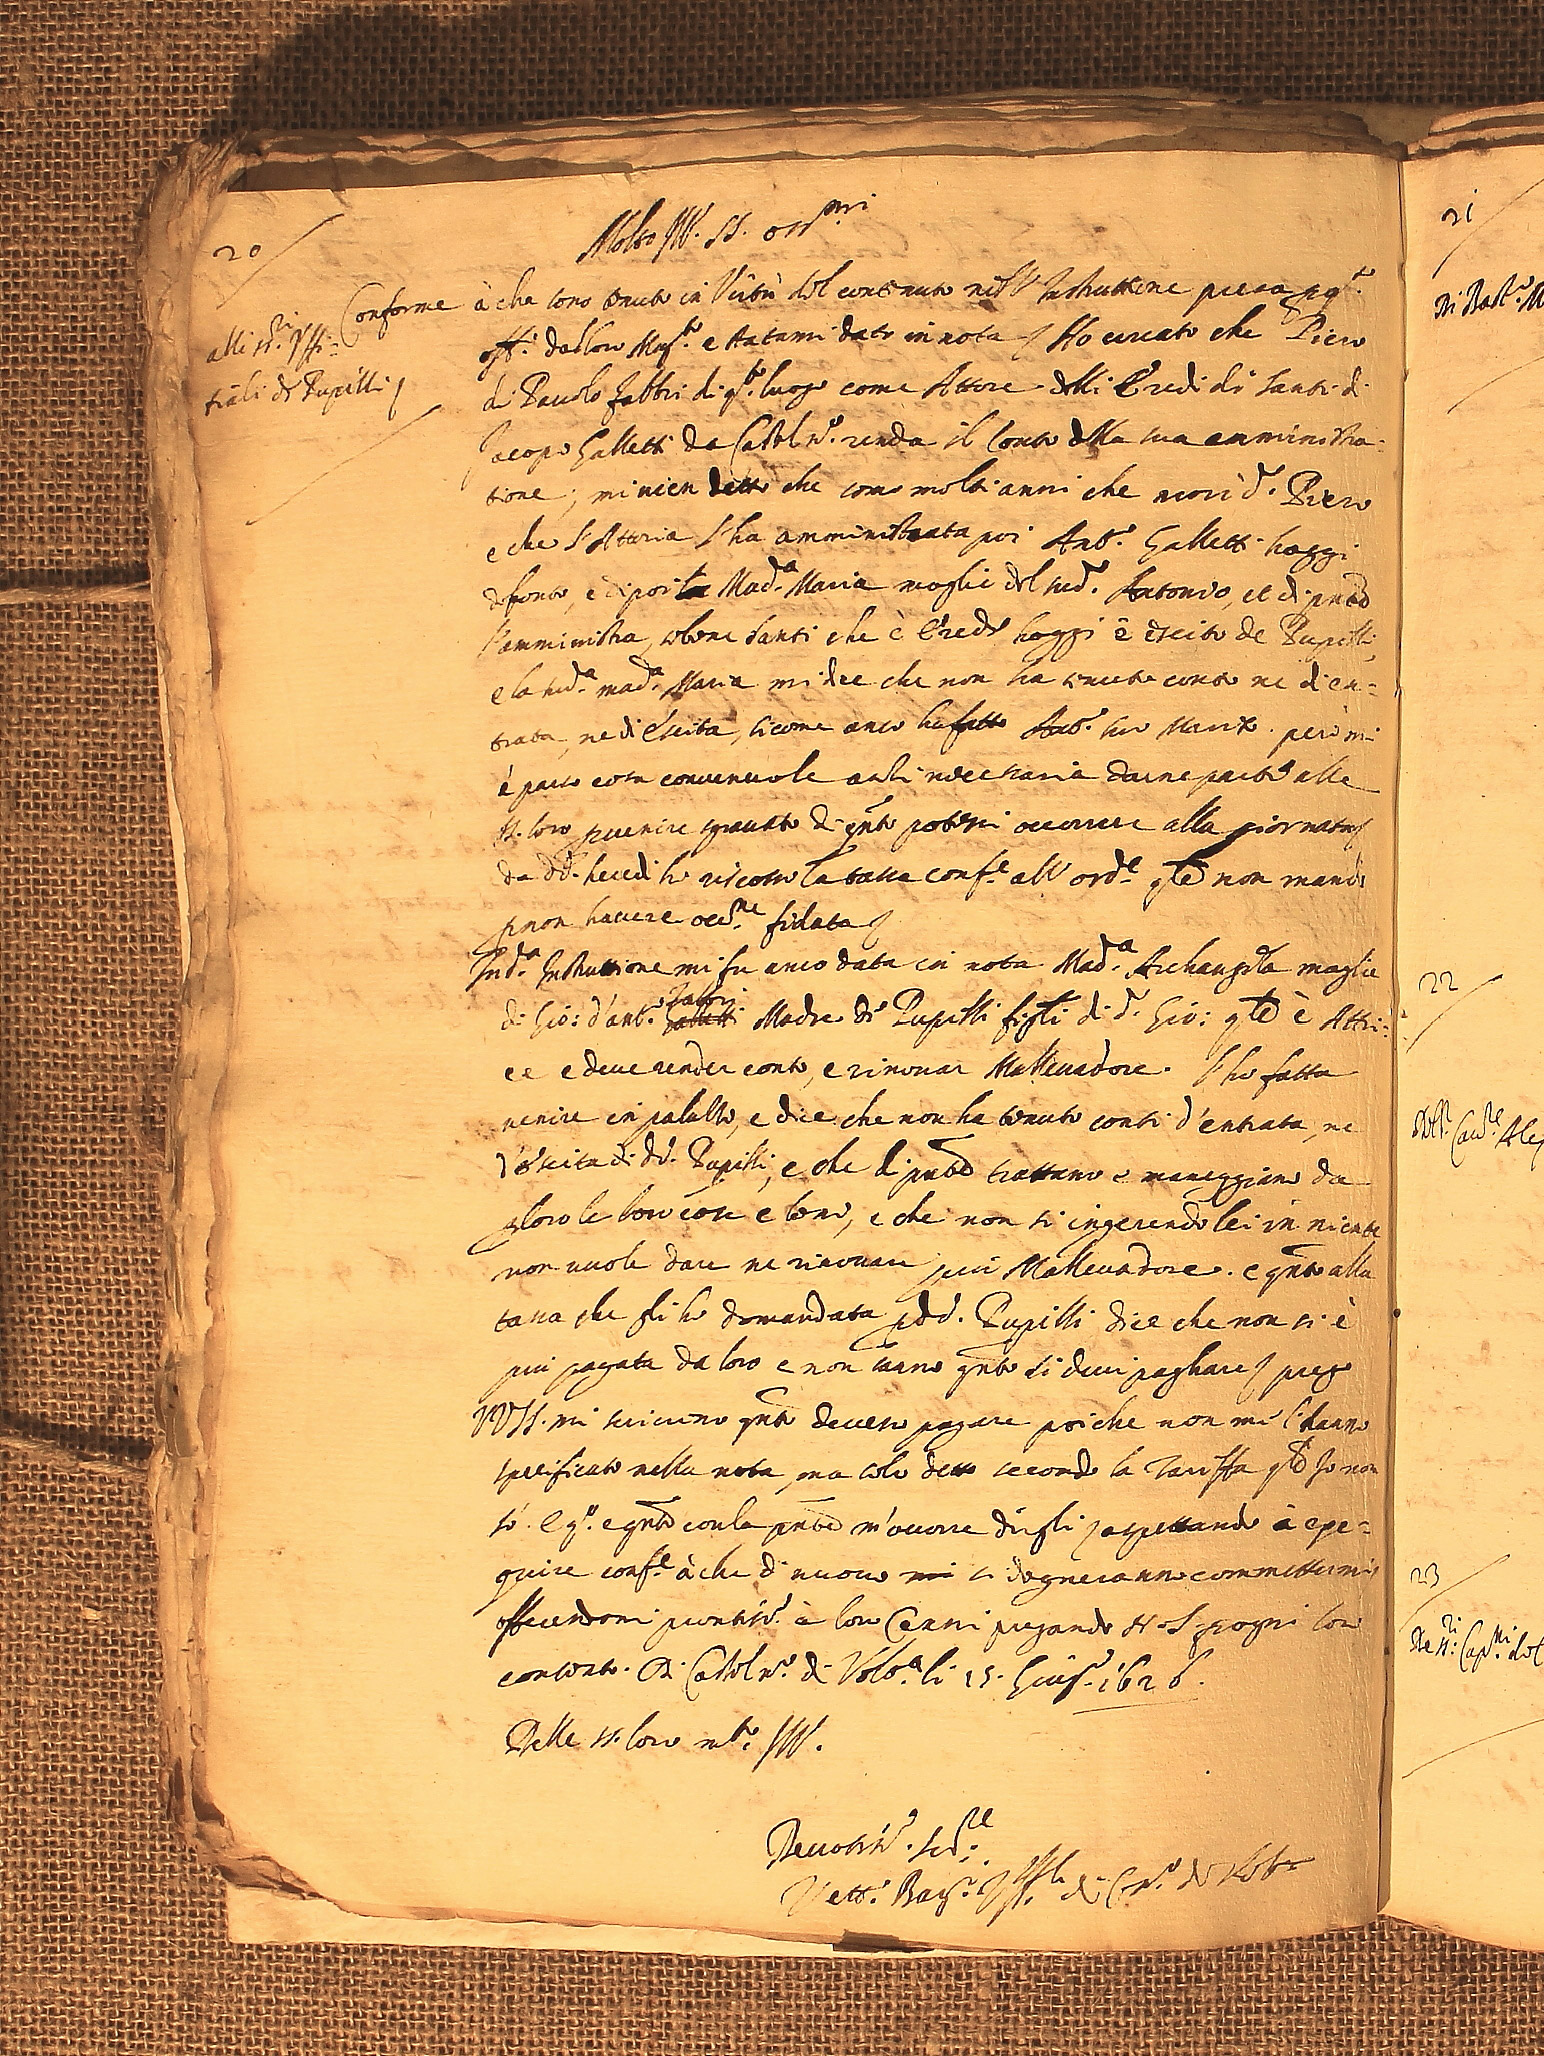 20
Molto Ill. SS. oss.mi
alli SS.ri Offi=
tiali de Pupilli
Conforme à che sono tenuto in virtù del contenuto nell' Instruttione
off.o dal loro Mag.to e statami data in nota Ho cercato che Piero
di Pauolo fabbri di q.to luogo come Attore delli Eredi di Santi di
Jacopo Galletti da Castel n.o renda il conto della sua amministra=
tione, mi vien detto che sono molti anni che morì d.o Piero
e che l'Attoria l'ha amministrata poi Ant.o Galletti hoggi
defonto, e di poi la Mad.a Maria moglie del sud.o Antonio, et di pnte
l'amministra, sebene Santi che è Erede hoggi è escito de Pupilli,
e la sud.a mad.a Maria mi dice che non ha tenuto conto ne di en=
trata, ne di escita, sicome anco ha fatto Ant.o suo Marito. però mi
è parso cosa conveneuole anzi necessaria darne parte alle
SS. loro
da dd. heredi ho riscosso la tassa conf.e all' ord.e q.le non mando
p non hauere occ.ne fidata
In d.a Instruttione mi fu anco data in nota Mad.a Archangela moglie
di Gio: d'Ant.o Galletti fabbri Madre de Pupilli figli di d.o Gio: q.le è Attri=
ce e deue render conto, e rinouar Malleuadore. l'ho fatta
uenire in palazzo, e dice che non ha tenuto conti d'entrata, ne
d'escita di dd. Pupilli, e che di pnte trattano e maneggiano da
p loro le loro cose e beni, e che non si ingerendo lei in niente
non uuole dare ne rinouare piu Malleuadore. e q.nto alla
tassa che gli ho domandata p dd. Pupilli dice che non si è
piu pagata da loro e non sanno q.nto si deui paghare prego
VV SS. mi scriuino q.nto deuesi pagare poiche non me l'hanno
specificato nella nota, ma solo detto secondo la Tariffa q.le Io non
sò. E q.o e q.nto con la pnte m'occorre dirgli aspettando à ese=
guire conf.e à che di nuouo mi si degneranno commettermi,
offerendomi prontiss.o à loro Cenni pregando N. S. p ogni lor
contento. Di Castel n.o di Vol.a li 15. Giug.o 1626.
Delle SS. loro m.to Ill.
Deuotiss.o ser.re
Vett.o
21
22
23